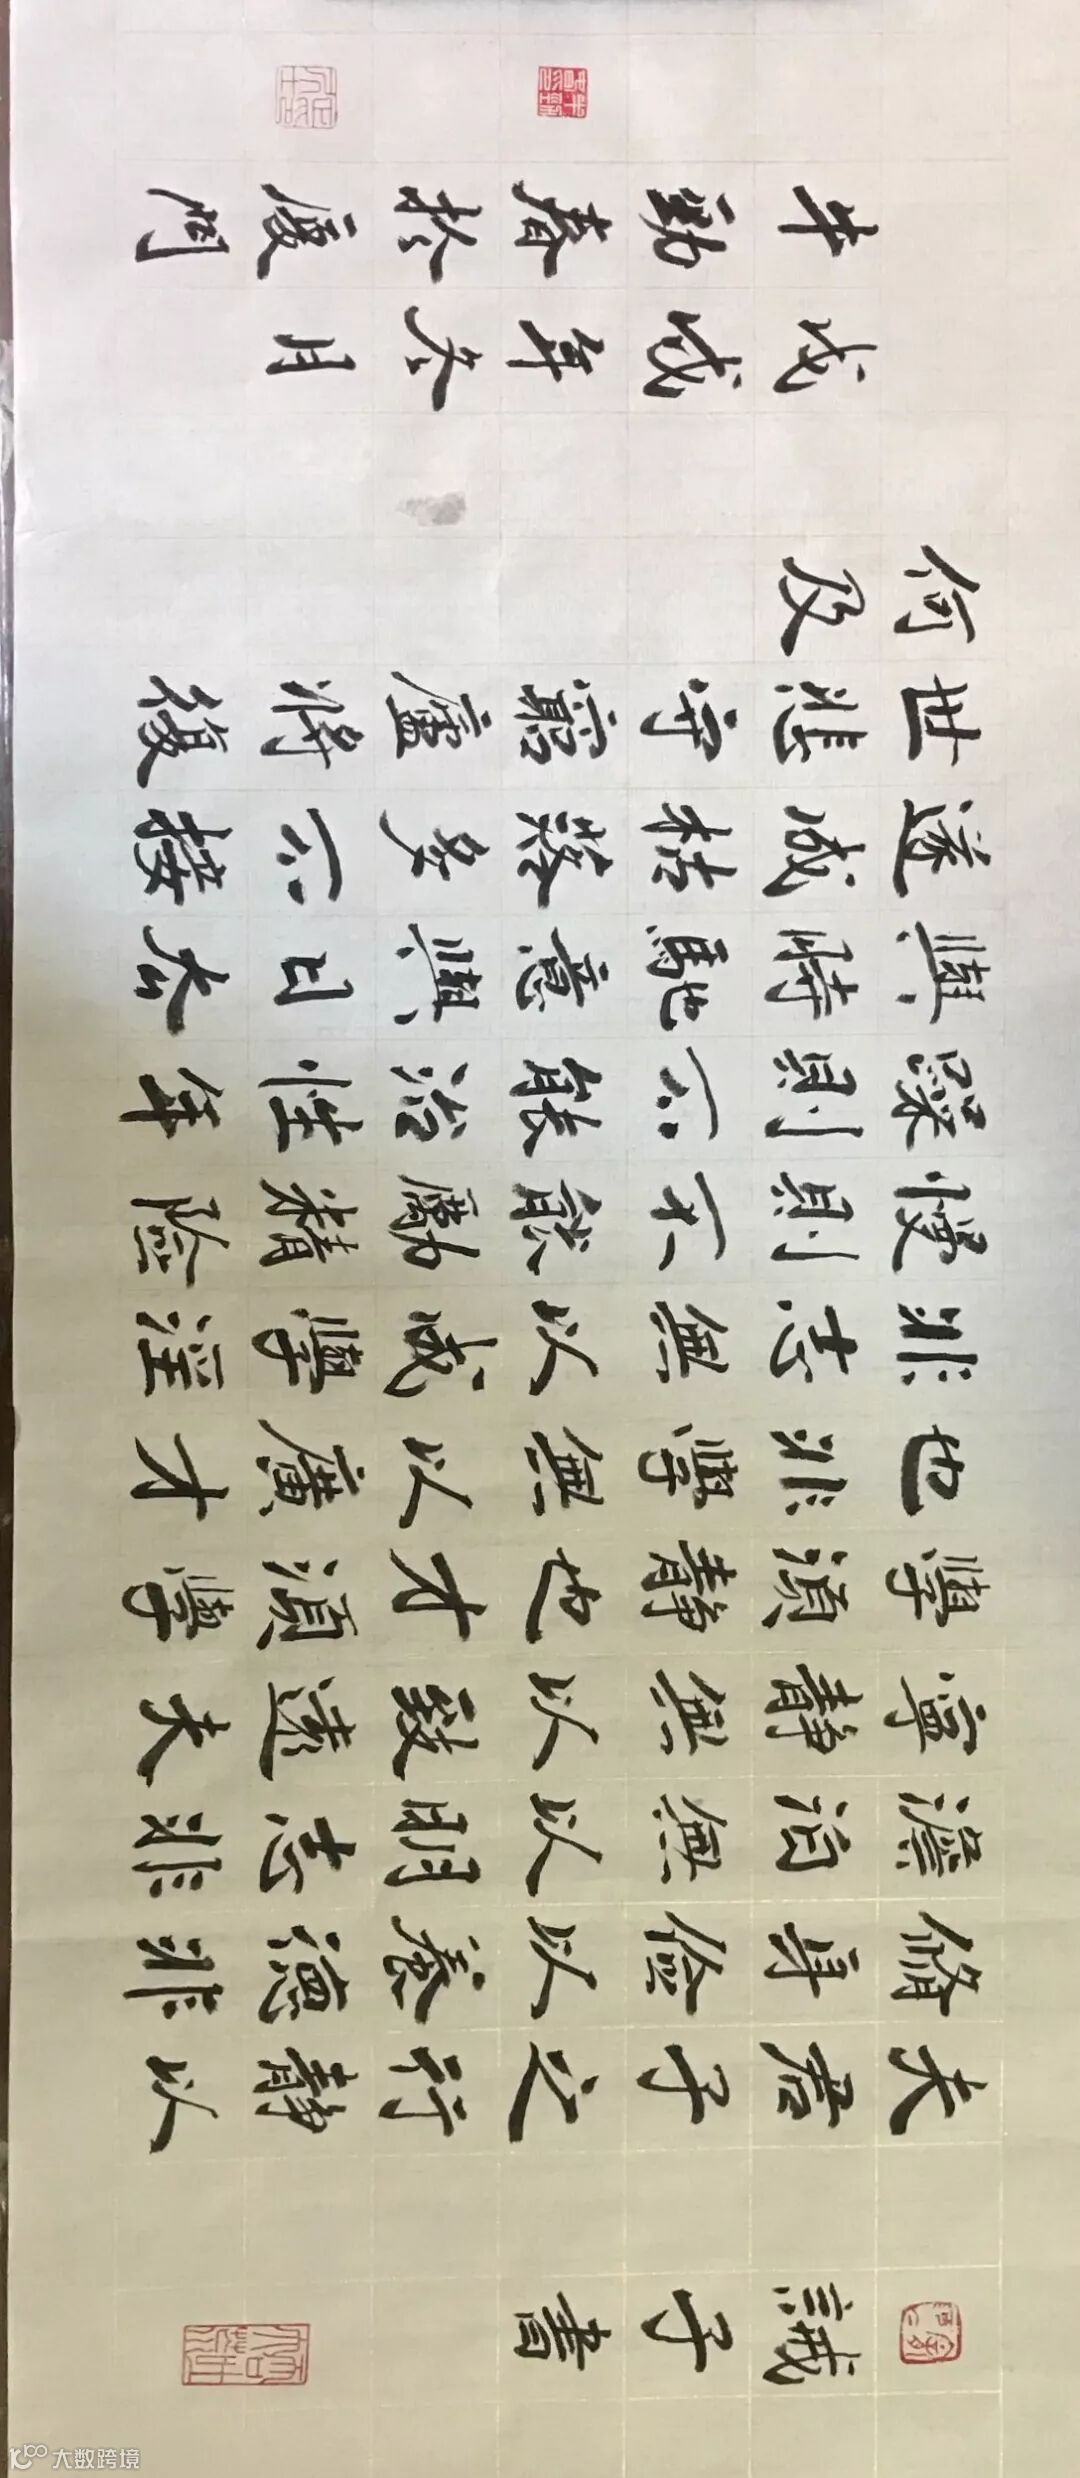 誡子書
夫君子之行靜以
脩身俭以養德非
澹泊無以明志非
寧靜無以致遠夫
學須靜也才須學
也非學無以廣才
非志無以成學淫
慢則不能勵精险
躁則不能治性年
與時馳意與日去
遂成枯落多不接
世悲守窮廬將復
何及
戊戌年冬月
牛勁春於廈門
大数跨境